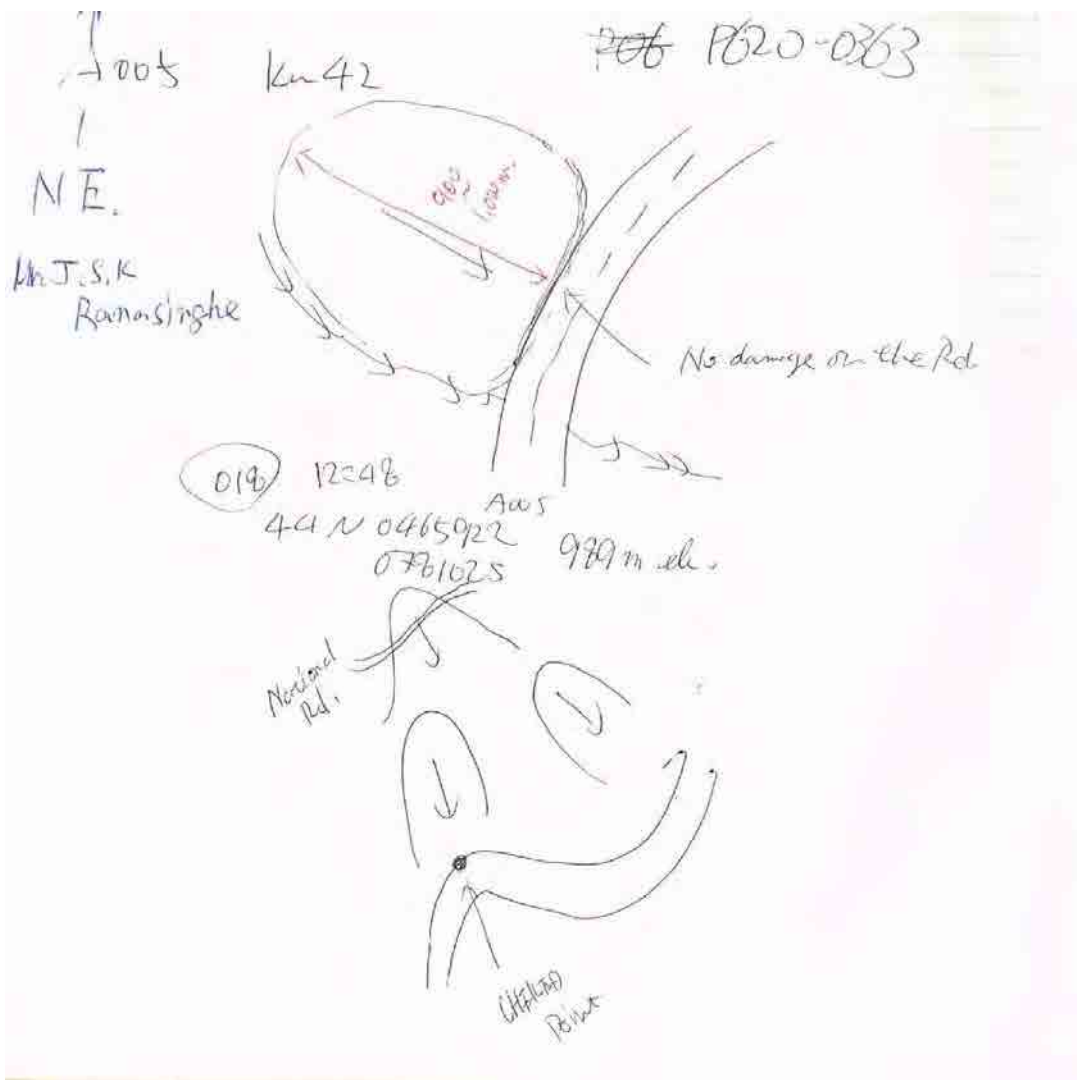 A005
Km 42
P620-0363
NE.
Mr J.S.K
Ranasinghe
900
~
1,000 m.
No damage on the Rd
018 12=48
A005
44 N 0465922
0781025
989 m ele.
National
Rd.
Point